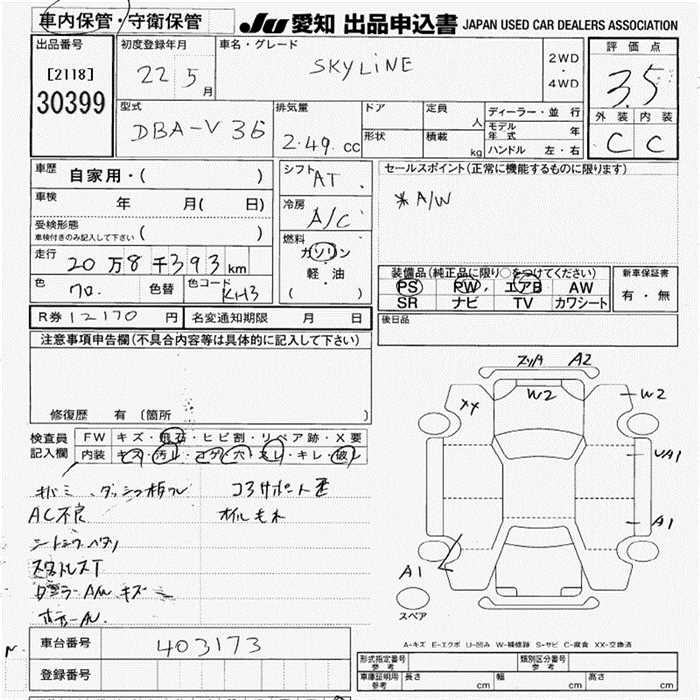 車内保管・守衛保管
JU 愛知 出品申込書 JAPAN USED CAR DEALERS ASSOCIATION
出品番号
[2118]
30399
初度登録年月
22 5月
車名・グレード
SKYLINE
2WD
・
4WD
評価点
3.5
外装 内装
C C
型式
DBA-V36
排気量
2.49 cc
ドア
形状
定員
人
積載
kg
ディーラー・並行
モデル年式 年
ハンドル 左・右
車歴
自家用・( )
車検
年 月( 日)
受検形態
車検付きのみ記入して下さい ( )
走行
20万8千393km
色
クロ
色替
色コード
KH3
シフト
AT
冷房
A/C
燃料
ガソリン
軽・油
( )
セールスポイント(正常に機能するものに限ります)
※A/W
装備品(純正品に限り○をつけてください)
PS PW エアB AW
SR ナビ TV カワシート
新車保証書
有・無
R券 12170円
名変通知期限 月 日
後日品
注意事項申告欄(不具合内容等は具体的に記入して下さい)
修復歴 有 〔箇所 〕
検査員
記入欄
FW キズ・飛石・ヒビ割・リペア跡・X要
内装 キズ・汚レ・コゲ・穴・スレ・キレ・破レ
AC不良
コアサポート歪
オイルモレ
A2
W2
XX
W2
A1
A1
A1
スペア
A-キズ E-エクボ U-凹み W-補修跡 S-サビ C-腐食 XX-交換済
車台番号
403173
登録番号
形式指定番号
参考
類別区分番号
参考
車庫証明用
参考
長さ cm
幅 cm
高さ cm